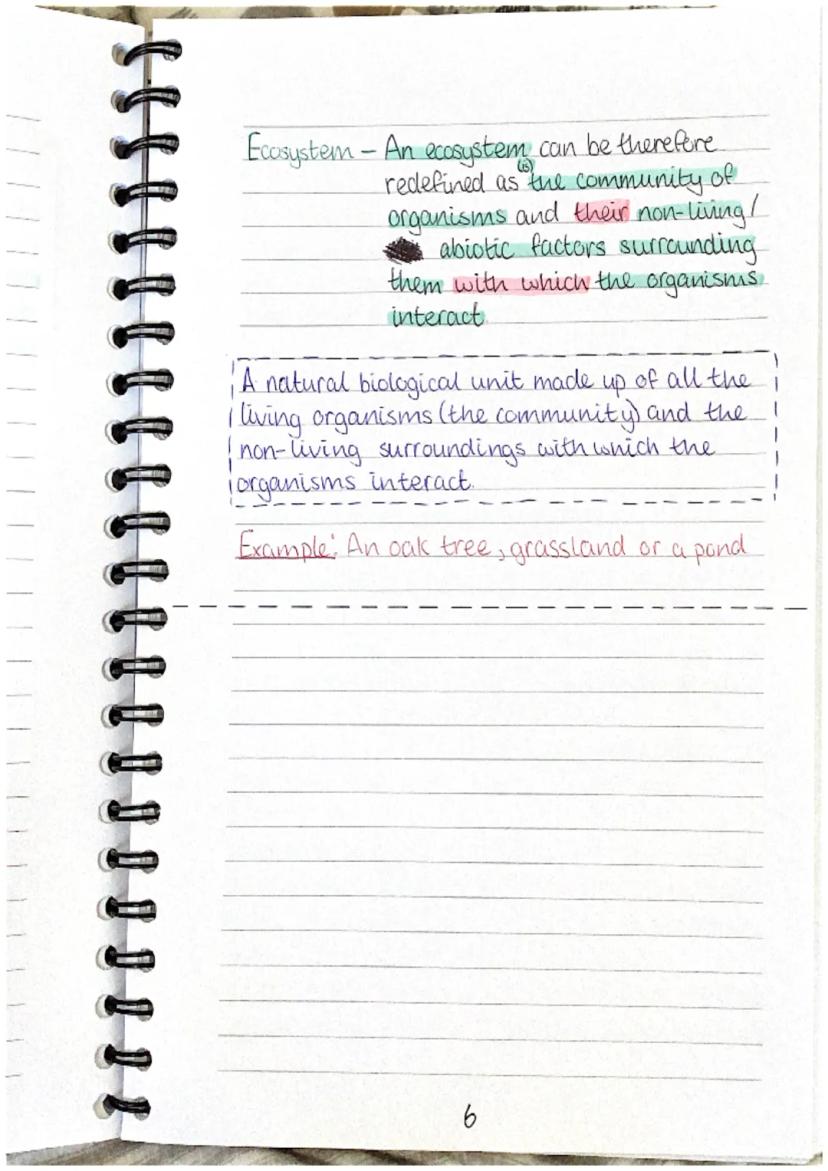 Ecosystem – An ecosystem can be therefore
redefined as (is) the community of
organisms and their non-living/
abiotic factors surrounding
them with which the organisms
interact.
A natural biological unit made up of all the
living organisms (the community) and the
non-living surroundings with which the
organisms interact.
Example: An oak tree, grassland or a pond
6